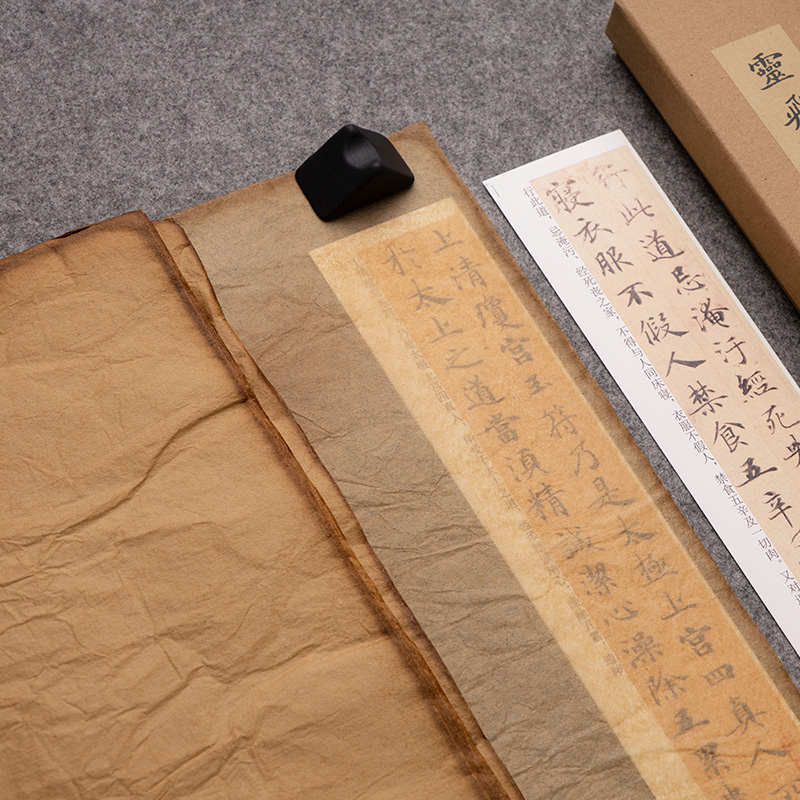 靈飛
行此道忌淹汙經死
寢衣服不假人禁食五辛
行此道，忌淹污、经死丧之家，不得与人同床寝，衣服不假人，禁食五辛及一切肉。又对
上清瓊宮玉符乃是太極上宮四真人
於太上之道當須精誠潔心澡除五累